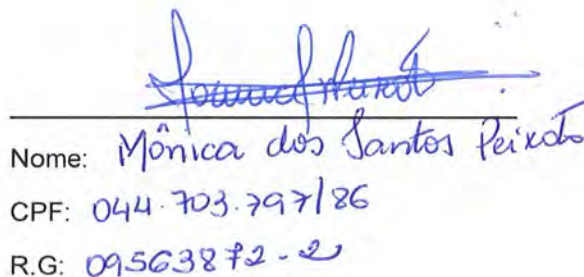 Nome: Mônica dos Santos Peixoto
CPF: 044.703.797/86
R.G: 09563872-2